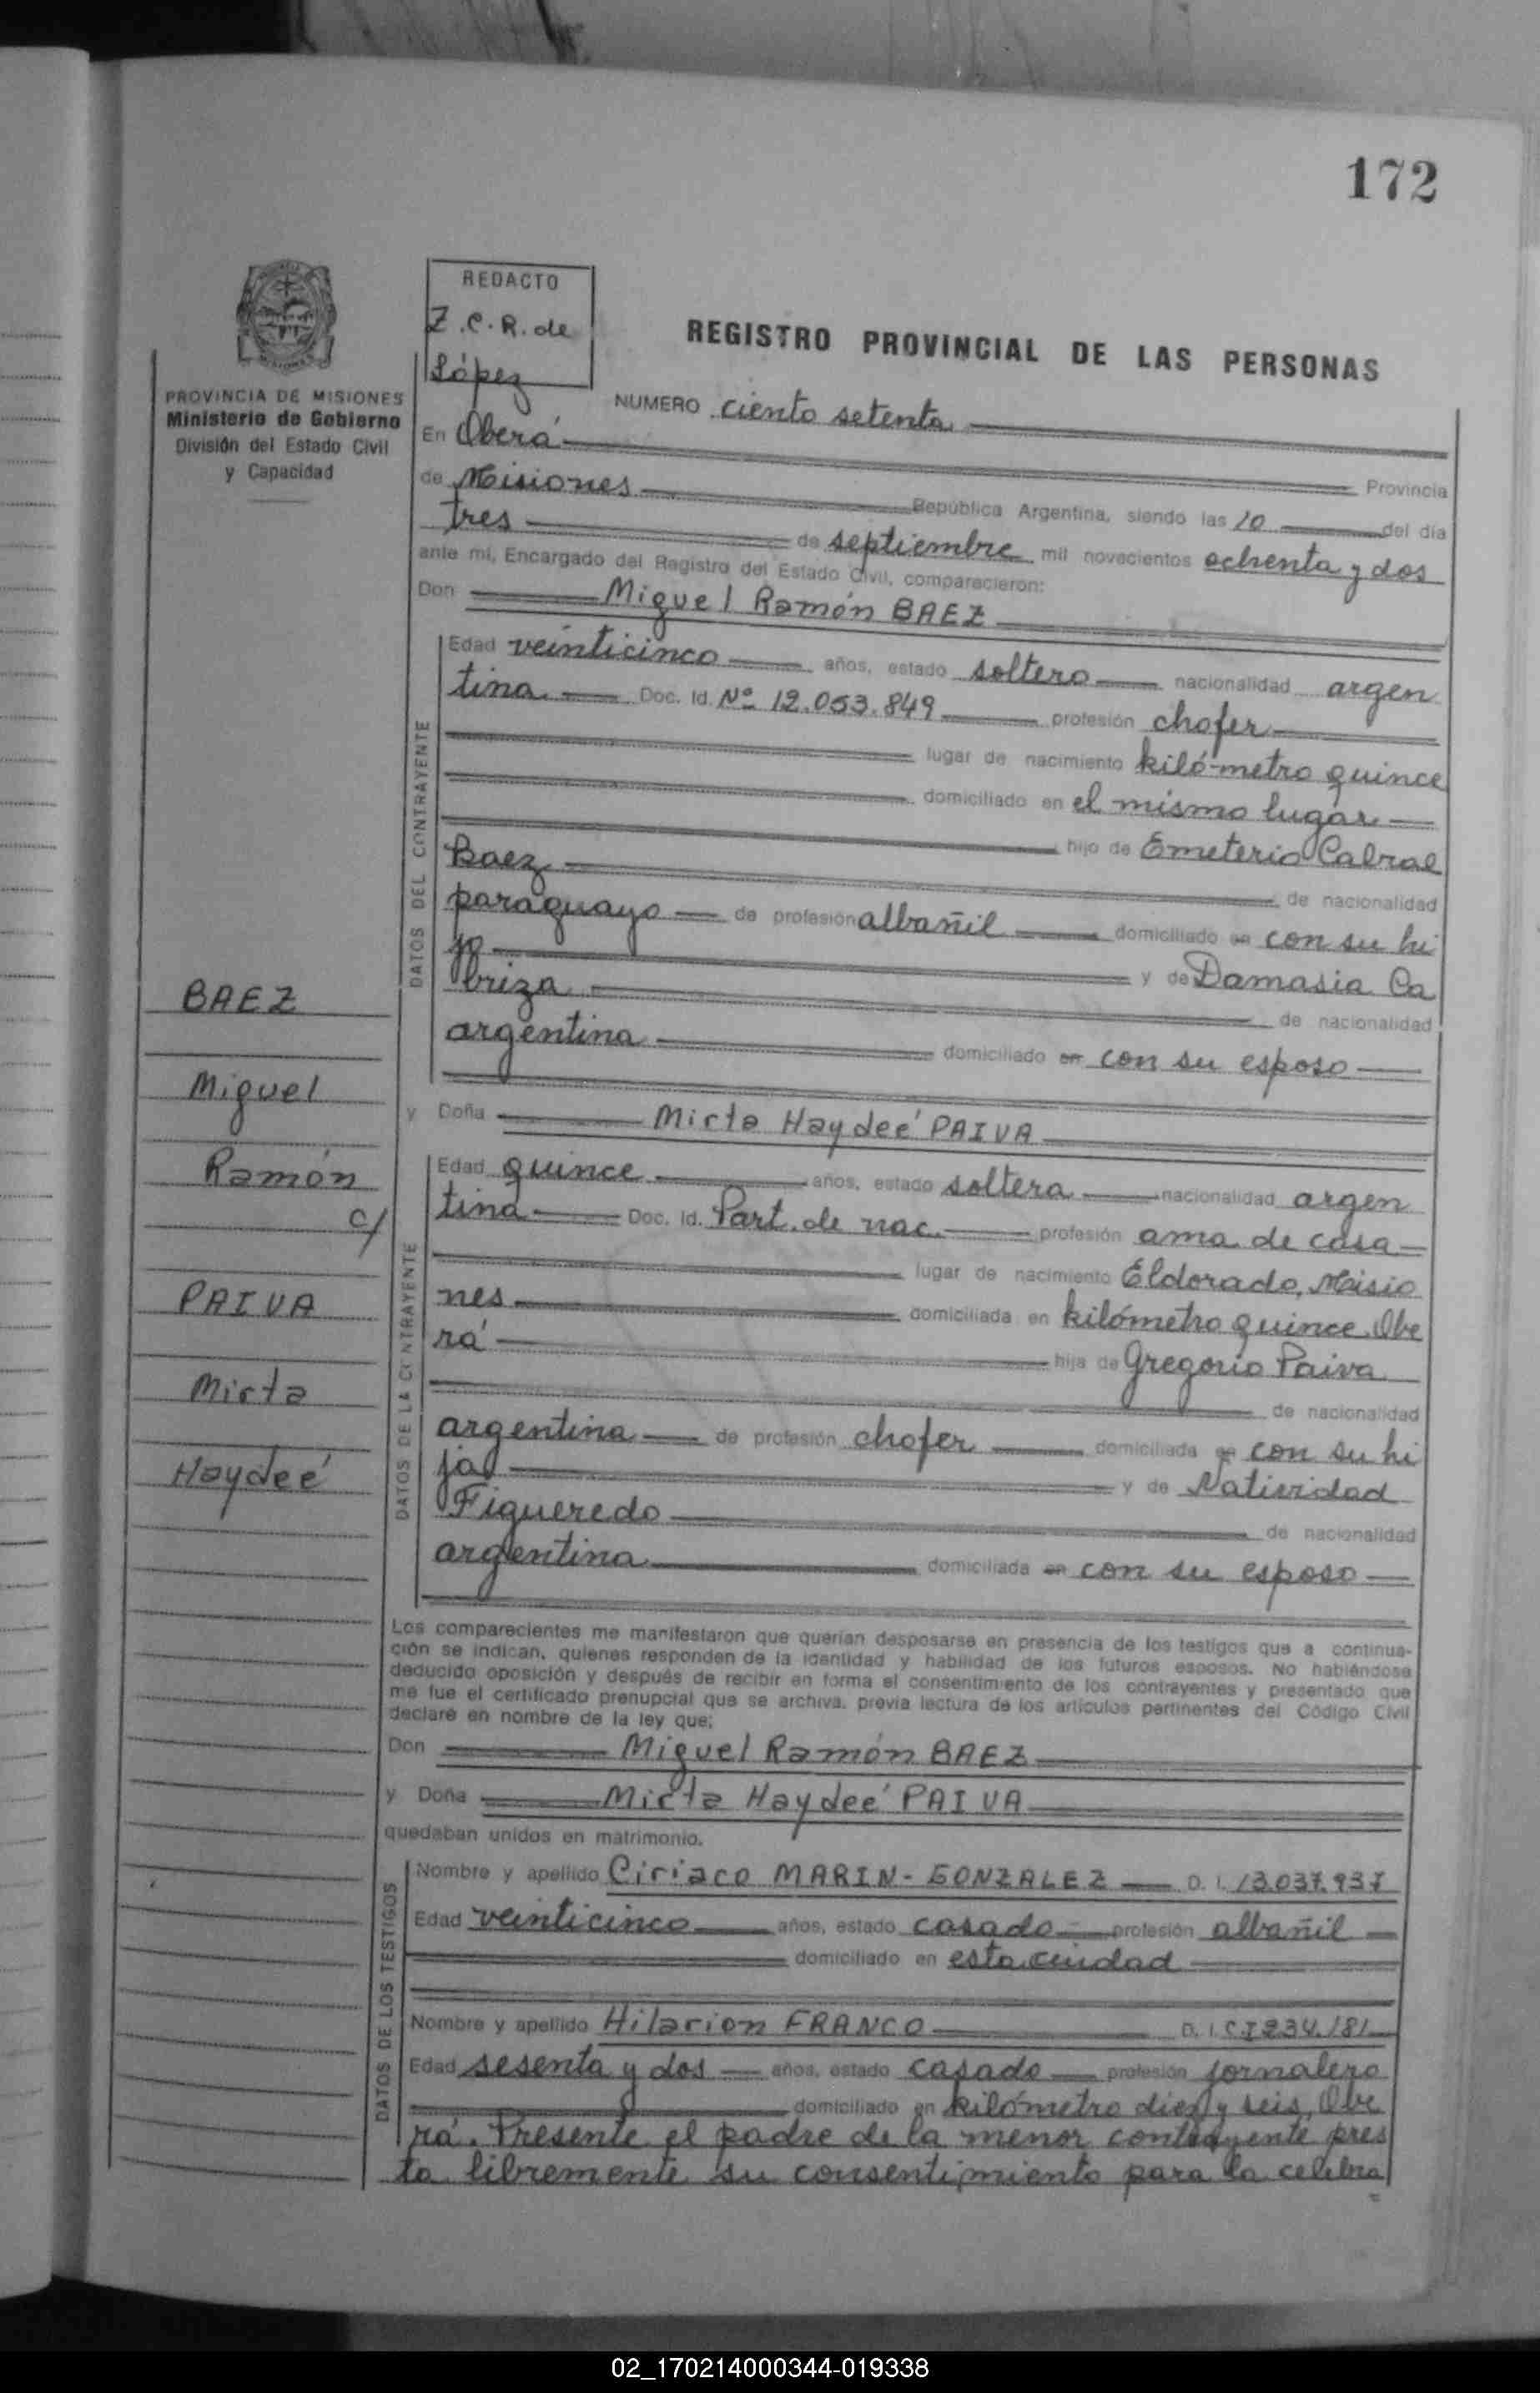 172
REDACTO
Z.C.R. de
López
REGISTRO PROVINCIAL DE LAS PERSONAS
PROVINCIA DE MISIONES
Ministerio de Gobierno
División del Estado Civil
y Capacidad
NUMERO ciento setenta
En Oberá Provincia
de Misiones República Argentina, siendo las 10 del día
tres de septiembre mil novecientos ochenta y dos
ante mi, Encargado del Registro del Estado Civil, comparecieron:
Don Miguel Ramón BAEZ
DATOS DEL CONTRAYENTE
Edad veinticinco años, estado soltero nacionalidad argen
tina Doc. Id. Nº 12.053.849 profesión chofer
lugar de nacimiento kilómetro quince
domiciliado en el mismo lugar
hijo de Emeterio Cabral
Baez de nacionalidad
paraguayo de profesión albañil domiciliado en con su hi
jo y de Damasia Ca
briza de nacionalidad
argentina domiciliado en con su esposo
BAEZ
Miguel
Ramón
c/
PAIVA
Mirta
Haydeé
y Doña Mirta Haydeé PAIVA
DATOS DE LA CONTRAYENTE
Edad quince años, estado soltera nacionalidad argen
tina Doc. Id. Part. de nac. profesión ama de casa
lugar de nacimiento Eldorado, Misio
nes domiciliada en kilómetro quince, Obe
rá hija de Gregorio Paiva
de nacionalidad
argentina de profesión chofer domiciliada en con su hi
ja y de Natividad
Figueredo de nacionalidad
argentina domiciliada en con su esposo
Los comparecientes me manifestaron que querían desposarse en presencia de los testigos que a continua-
ción se indican, quienes responden de la identidad y habilidad de los futuros esposos. No habiéndose
deducido oposición y después de recibir en forma el consentimiento de los contrayentes y presentado que
me fue el certificado prenupcial que se archiva, previa lectura de los artículos pertinentes del Código Civil
declaré en nombre de la ley que;
Don Miguel Ramón BAEZ
y Doña Mirta Haydeé PAIVA
quedaban unidos en matrimonio.
DATOS DE LOS TESTIGOS
Nombre y apellido Ciriaco MARIN-GONZALEZ D. I. 13.037.937
Edad veinticinco años, estado casado profesión albañil
domiciliado en esta ciudad
Nombre y apellido Hilarion FRANCO D. I. C.I 234.181
Edad sesenta y dos años, estado casado profesión jornalero
domiciliado en kilómetro diez y seis, Obe
rá. Presente el padre de la menor contrayente pres
ta libremente su consentimiento para la celebra
02_170214000344-019338